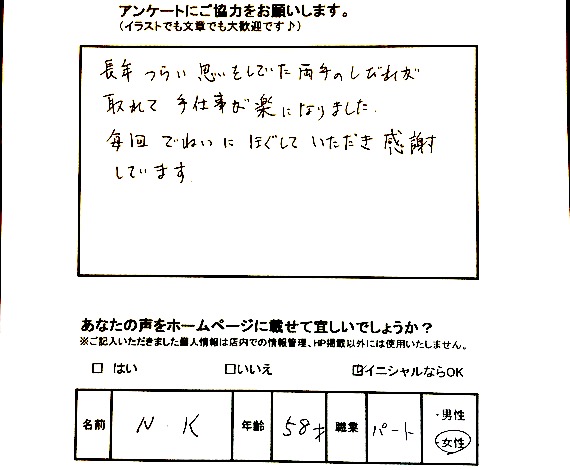 アンケートにご協力をお願いします。
（イラストでも文章でも大歓迎です♪）
長年 つらい 思いをしていた 両手のしびれが
取れて 手仕事が 楽になりました.
毎回 ていねいに ほぐして いただき 感謝
しています.
あなたの声をホームページに載せて宜しいでしょうか？
※ご記入いただきました個人情報は店内での情報管理、HP掲載以外には使用いたしません。
□ はい □いいえ ☑イニシャルならOK
名前 N・K 年齢 58才 職業 パート ・男性
・女性